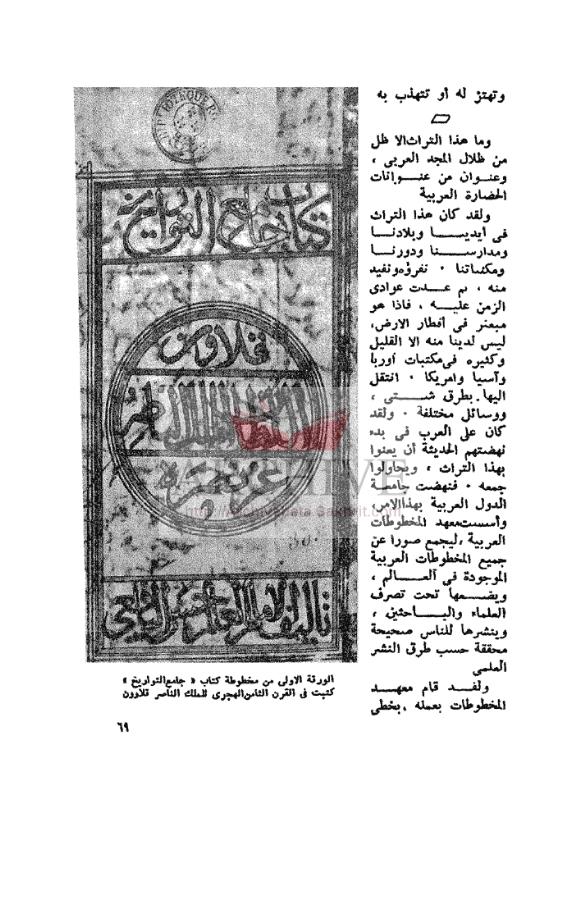 وتهتز له أو تتهذب به
وما هذا التراث الا ظل
من ظلال المجد العربى ،
وعنوان من عنوانات
الحضارة العربية
ولقد كان هذا التراث
فى أيدينا وبلادنا
ومدارسنا ودورنا
ومكتباتنا ٠ نقرؤه ونفيد
منه ، ثم عدت عوادى
الزمن عليه ، فاذا هو
مبعثر فى أقطار الارض،
ليس لدينا منه الا القليل
وكثيره فى مكتبات أوربا
وآسيا وامريكا ٠ انتقل
اليها بطرق شتى ،
ووسائل مختلفة ٠ ولقد
كان على العرب فى بدء
نهضتهم الحديثة أن يعنوا
بهذا التراث ، ويحاولوا
جمعه ٠ فنهضت جامعة
الدول العربية بهذا الامر،
وأسست معهد المخطوطات
العربية ،ليجمع صورا عن
جميع المخطوطات العربية
الموجودة فى العالم ،
ويضعها تحت تصرف
العلماء والباحثين ،
وينشرها للناس صحيحة
محققة حسب طرق النشر
العلمى
ولقد قام معهد
المخطوطات بعمله ،بخطى
كتاب جامع التواريخ
قلاوون
السلطان الملك الناصر
عز نصره
ARCHIVE
http://Archivebeta.Sakhrit.com
الورقة الاولى من مخطوطة كتاب « جامع التواريخ »
كتبت فى القرن الثامن الهجرى للملك الناصر قلاوون
٦٩